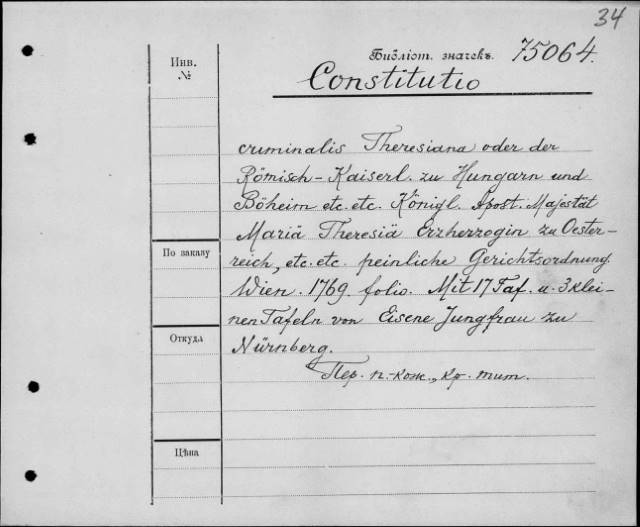 34
Инв.
№
Библіот. значекъ. 75064.
Constitutio
criminalis Theresiana oder der
Römisch-Kaiserl. zu Hungarn und
Böheim etc. etc. Königl. Apost. Majestät
Mariä Theresiä Erzherzogin zu Oester-
По заказу
reich, etc. etc. peinliche Gerichtsordnung.
Wien. 1769. folio. Mit 17 Taf. u. 3 klei-
nen Tafeln von Eisene Jungfrau zu
Откуда
Nürnberg.
Пер. п.-кож., кр. тит.
Цѣна